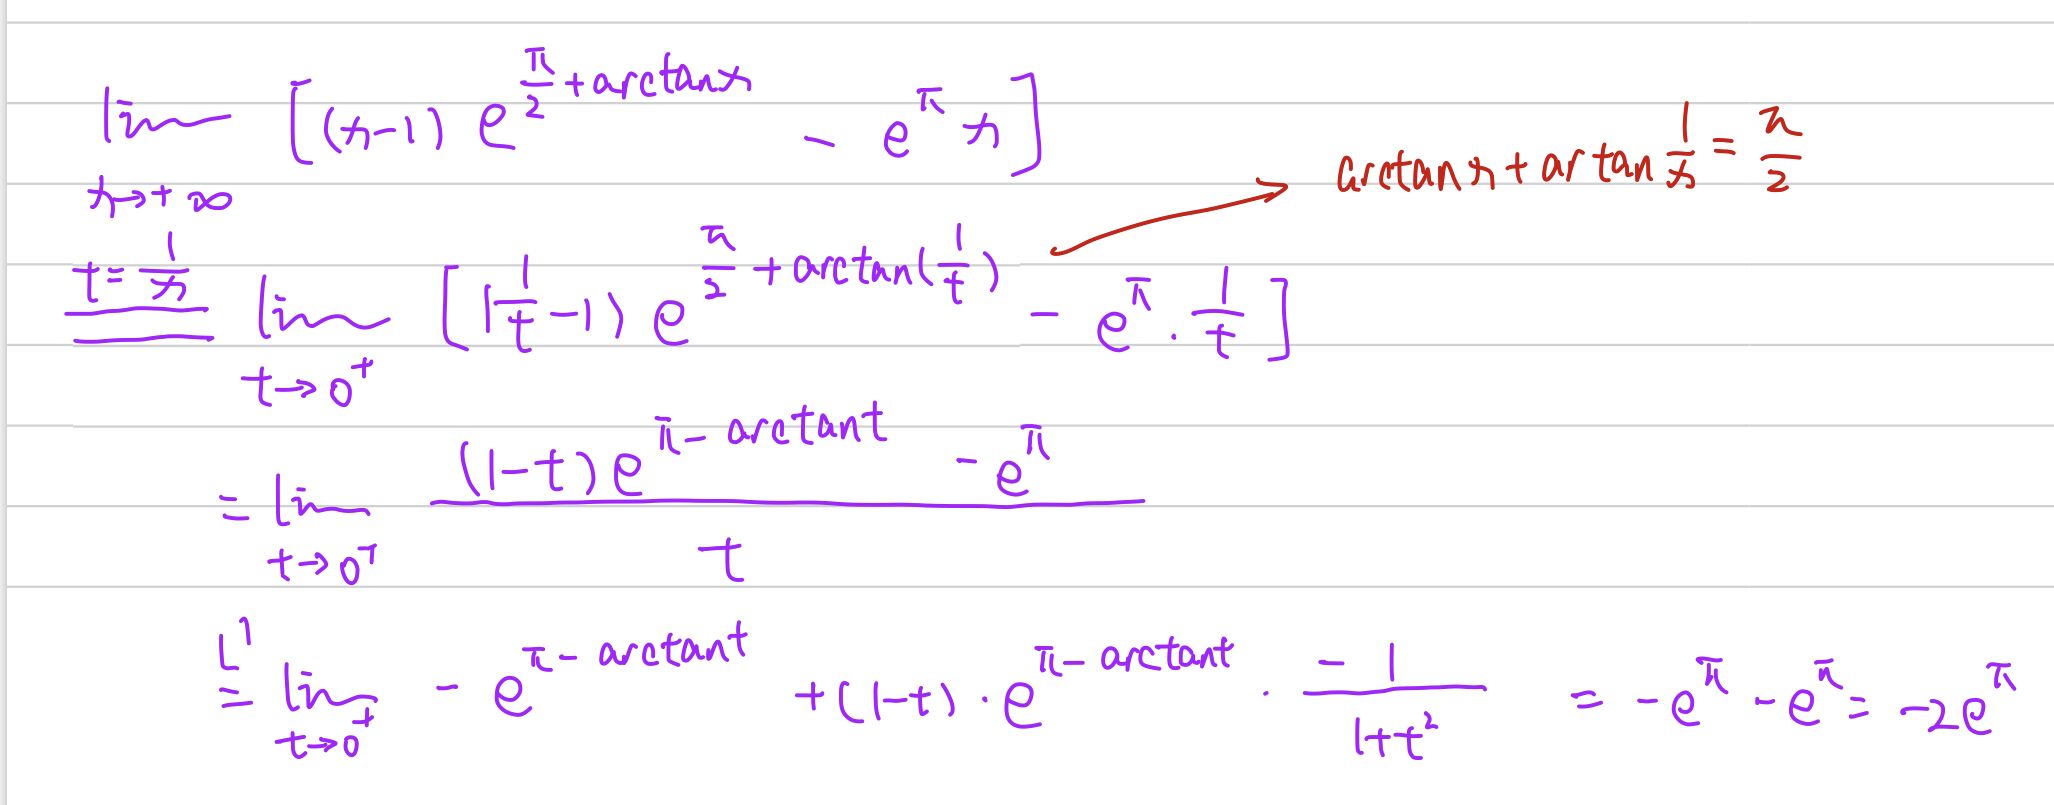 lim_{x→+∞} [(x-1) e^{π/2+arctanx} - e^π x]
arctanx + artan 1/x = π/2
t=1/x lim_{t→0^+} [(1/t-1) e^{π/2+arctan(1/t)} - e^π · 1/t]
= lim_{t→0^+} ((1-t)e^{π-arctant} - e^π)/t
L' = lim_{t→0^+} - e^{π-arctant} + (1-t) · e^{π-arctant} · -1/(1+t²) = -e^π - e^π = -2e^π